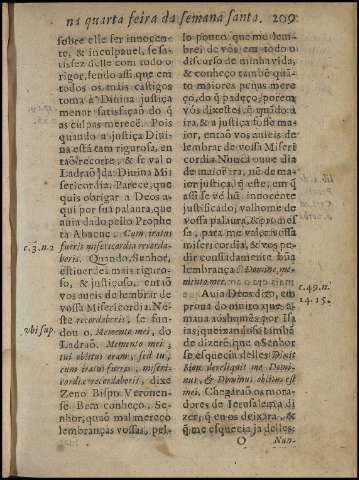 na quarta feira da semana santa. 209
sobre elle ser innocen-
te, & inculpavel, se sa-
tisfez delle com todo o
rigor, sendo assi, que em
todos os mais castigos
toma a Divina justiça
menor satisfação do q̃
as culpas merecẽ. Pois
quando a justiça Divi-
na està tam rigurosa, en
taõ recorre, & se val o
Ladraõ da Divina Mi
sericordia. Parece, que
quis obrigar a Deos a-
qui por sua palavra, que
avia dado pello Prophe
ta Abacuc. Cum iratus
fueris misericordia recorda-
beris. Quando, Senhor,
estiverdes mais riguro-
so, & justiçoso, entaõ
vos aveis de lembrar de
vossa Misericordia. Ne-
ste recordaberis, se fun-
dou o Memento mei, do
Ladraõ. Memento mei;
tui oblitus eram, sed tu,
cum iratus fueras, miseri-
cordiæ recordaberis, dixe
Zeno Bispo Veronen-
se. Bem conheço, Se-
nhor, quaõ mal mereço
lembranças vossas, pel-
c.3. n.2
ubi sup.
lo pouco, que me lem-
brei de vòs em todo o
discurso de minha vida,
& conheço tambẽ quã-
to maiores penas mere-
ço, do q̃ padeço, porem
vòs dixestes, q̃ quãdo a
ira & a justiça fosse ma-
ior, entaõ vos aveis de
lembrar de vossa Miseri
cordia. Nunca ouve dia
de maior ira, nẽ de ma-
ior justiça, q̃ este, em q̃
assi se vè hũ innocente
justiçado, valhome de
vossa palavra, & prõmes
sa, para me valer vossa
misericordia, & vos pe-
dir confiadamente hũa
lembrança: Domine, me-
mento mei.
Avia Deos dito, em
prova do muito que a-
mava aos homẽs, por Isa
ias, que ainda q̃ ouvesse
de dizerẽ, que o Senhor
se esquecia delles: Dixit
Sion dereliquit me Domi-
nus, & Dominus oblitus est
mei. Chegaraõ os mora-
dores de Jerusalem a di-
zer, q̃ eu os deixara, &
q̃ me esquecia já delles:
c.49. n.
14. 15.
O Nun-